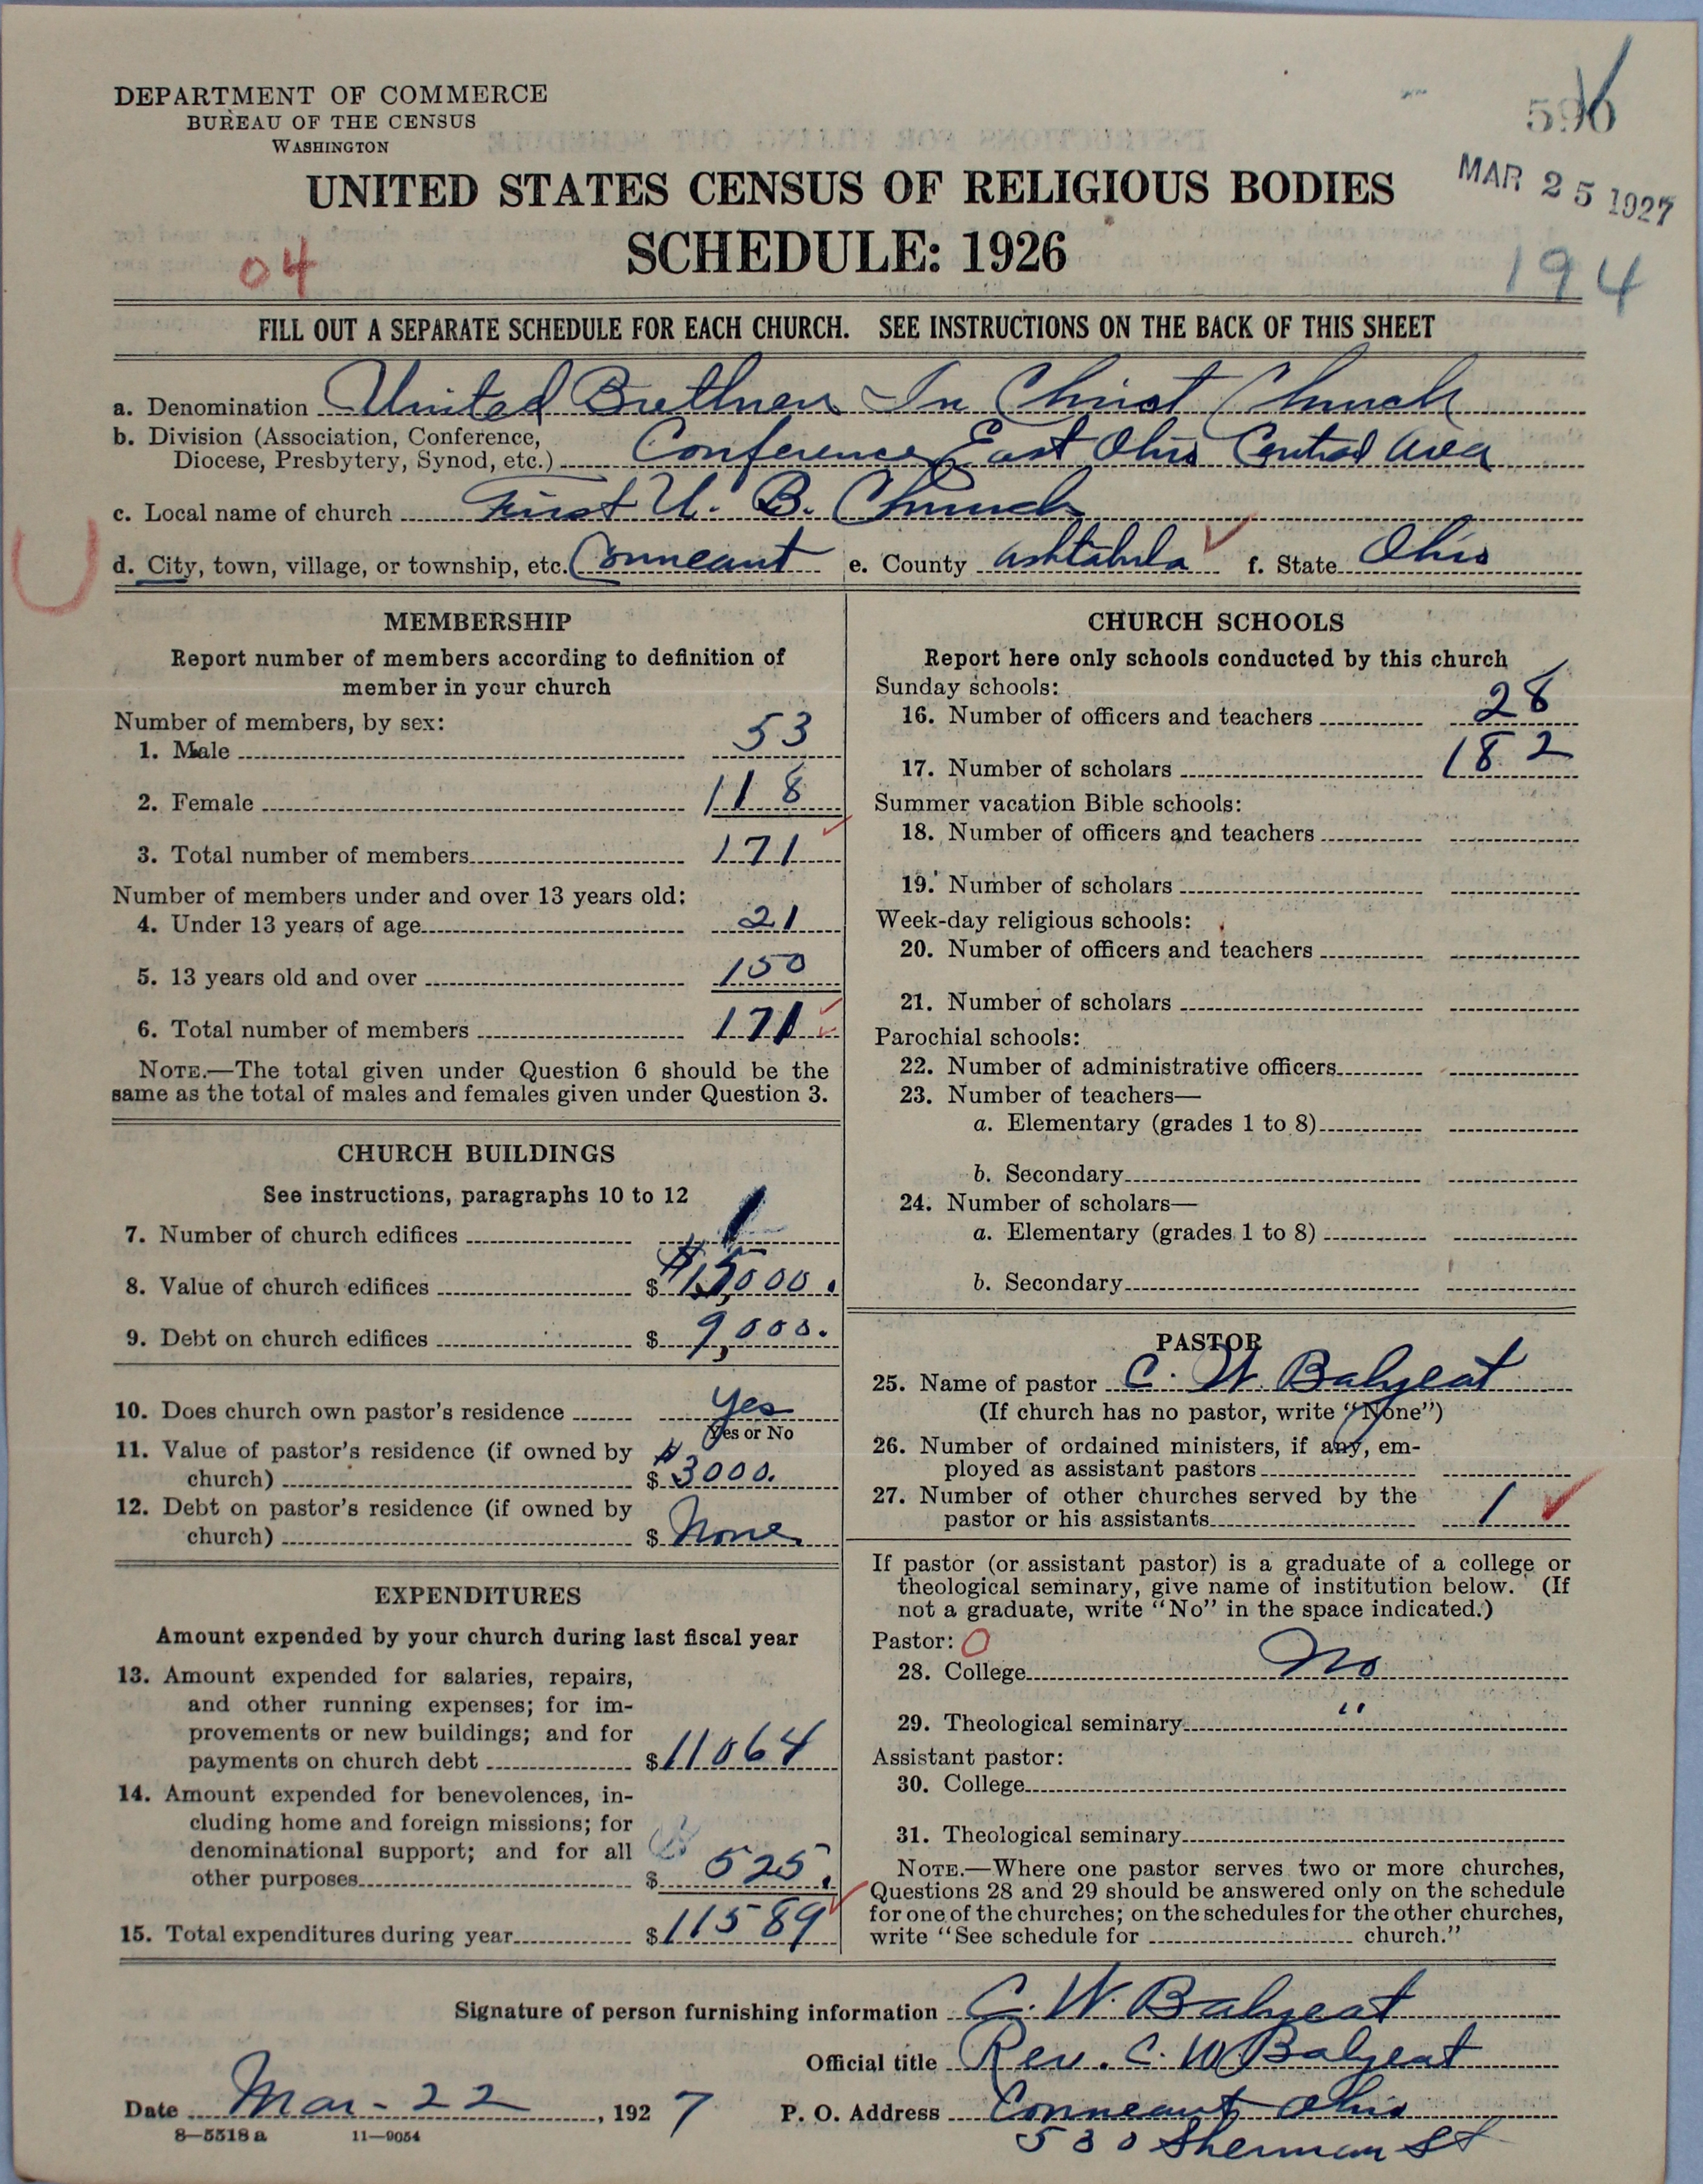 DEPARTMENT OF COMMERCE
BUREAU OF THE CENSUS
WASHINGTON
590
MAR 25 1927
UNITED STATES CENSUS OF RELIGIOUS BODIES
SCHEDULE: 1926
04
194
FILL OUT A SEPARATE SCHEDULE FOR EACH CHURCH. SEE INSTRUCTIONS ON THE BACK OF THIS SHEET
a. Denomination United Brethren In Christ Church
b. Division (Association, Conference,
Diocese, Presbytery, Synod, etc.) Conference East Ohio Central Area
c. Local name of church First U. B. Church
d. City, town, village, or township, etc. Conneaut e. County Ashtabula f. State Ohio
MEMBERSHIP
Report number of members according to definition of
member in your church
Number of members, by sex:
1. Male 53
2. Female 118
3. Total number of members 171
Number of members under and over 13 years old:
4. Under 13 years of age 21
5. 13 years old and over 150
6. Total number of members 171
NOTE.—The total given under Question 6 should be the
same as the total of males and females given under Question 3.
CHURCH BUILDINGS
See instructions, paragraphs 10 to 12
7. Number of church edifices 1
8. Value of church edifices $ $15,000.
9. Debt on church edifices $ 9,000.
10. Does church own pastor's residence yes
Yes or No
11. Value of pastor's residence (if owned by
church) $ $3000.
12. Debt on pastor's residence (if owned by
church) $ None
EXPENDITURES
Amount expended by your church during last fiscal year
13. Amount expended for salaries, repairs,
and other running expenses; for im-
provements or new buildings; and for
payments on church debt $ 11064
14. Amount expended for benevolences, in-
cluding home and foreign missions; for
denominational support; and for all
other purposes $ 525.
15. Total expenditures during year $ 11589
CHURCH SCHOOLS
Report here only schools conducted by this church
Sunday schools:
16. Number of officers and teachers 28
17. Number of scholars 182
Summer vacation Bible schools:
18. Number of officers and teachers
19. Number of scholars
Week-day religious schools:
20. Number of officers and teachers
21. Number of scholars
Parochial schools:
22. Number of administrative officers
23. Number of teachers—
a. Elementary (grades 1 to 8)
b. Secondary
24. Number of scholars—
a. Elementary (grades 1 to 8)
b. Secondary
PASTOR
25. Name of pastor C. W. Balyeat
(If church has no pastor, write "None")
26. Number of ordained ministers, if any, em-
ployed as assistant pastors
27. Number of other churches served by the
pastor or his assistants 1
If pastor (or assistant pastor) is a graduate of a college or
theological seminary, give name of institution below. (If
not a graduate, write "No" in the space indicated.)
Pastor: O
28. College No
29. Theological seminary "
Assistant pastor:
30. College
31. Theological seminary
NOTE.—Where one pastor serves two or more churches,
Questions 28 and 29 should be answered only on the schedule
for one of the churches; on the schedules for the other churches,
write "See schedule for church."
Signature of person furnishing information C. W. Balyeat
Official title Rev. C. W. Balyeat
Date Mar-22, 1927 P. O. Address Conneaut Ohio
530 Sherman St
8-5518a 11-9054